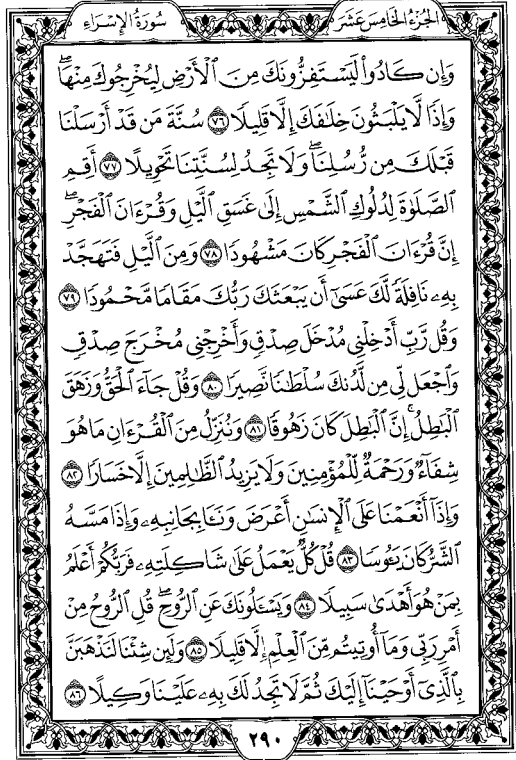 الجزء الخامس عشر
سورة الإسراء
وَإِن كَادُوا۟ لَيَسْتَفِزُّونَكَ مِنَ ٱلْأَرْضِ لِيُخْرِجُوكَ مِنْهَا ۖ
وَإِذًا لَّا يَلْبَثُونَ خِلَٰفَكَ إِلَّا قَلِيلًا ٧٦ سُنَّةَ مَن قَدْ أَرْسَلْنَا
قَبْلَكَ مِن رُّسُلِنَا ۖ وَلَا تَجِدُ لِسُنَّتِنَا تَحْوِيلًا ٧٧ أَقِمِ
ٱلصَّلَوٰةَ لِدُلُوكِ ٱلشَّمْسِ إِلَىٰ غَسَقِ ٱلَّيْلِ وَقُرْءَانَ ٱلْفَجْرِ ۖ
إِنَّ قُرْءَانَ ٱلْفَجْرِ كَانَ مَشْهُودًا ٧٨ وَمِنَ ٱلَّيْلِ فَتَهَجَّدْ
بِهِۦ نَافِلَةً لَّكَ عَسَىٰٓ أَن يَبْعَثَكَ رَبُّكَ مَقَامًا مَّحْمُودًا ٧٩
وَقُل رَّبِّ أَدْخِلْنِى مُدْخَلَ صِدْقٍ وَأَخْرِجْنِى مُخْرَجَ صِدْقٍ
وَٱجْعَل لِّى مِن لَّدُنكَ سُلْطَٰنًا نَّصِيرًا ٨٠ وَقُلْ جَآءَ ٱلْحَقُّ وَزَهَقَ
ٱلْبَٰطِلُ ۚ إِنَّ ٱلْبَٰطِلَ كَانَ زَهُوقًا ٨١ وَنُنَزِّلُ مِنَ ٱلْقُرْءَانِ مَا هُوَ
شِفَآءٌ وَرَحْمَةٌ لِّلْمُؤْمِنِينَ وَلَا يَزِيدُ ٱلظَّٰلِمِينَ إِلَّا خَسَارًا ٨٢
وَإِذَآ أَنْعَمْنَا عَلَى ٱلْإِنسَٰنِ أَعْرَضَ وَنَـَٔا بِجَانِبِهِۦ وَإِذَا مَسَّهُ
ٱلشَّرُّ كَانَ يَـُٔوسًا ٨٣ قُلْ كُلٌّ يَعْمَلُ عَلَىٰ شَاكِلَتِهِۦ فَرَبُّكُمْ أَعْلَمُ
بِمَنْ هُوَ أَهْدَىٰ سَبِيلًا ٨٤ وَيَسْـَٔلُونَكَ عَنِ ٱلرُّوحِ ۖ قُلِ ٱلرُّوحُ مِنْ
أَمْرِ رَبِّى وَمَآ أُوتِيتُم مِّنَ ٱلْعِلْمِ إِلَّا قَلِيلًا ٨٥ وَلَئِن شِئْنَا لَنَذْهَبَنَّ
بِٱلَّذِىٓ أَوْحَيْنَآ إِلَيْكَ ثُمَّ لَا تَجِدُ لَكَ بِهِۦ عَلَيْنَا وَكِيلًا ٨٦
٢٩٠